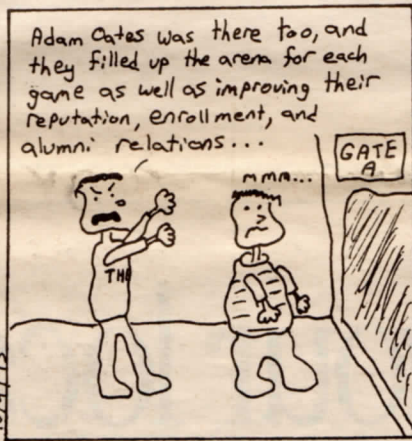 Adam Oates was there too, and
they filled up the arena for each
game as well as improving their
reputation, enrollment, and
alumni relations...
mmm...
GATE
A
THE